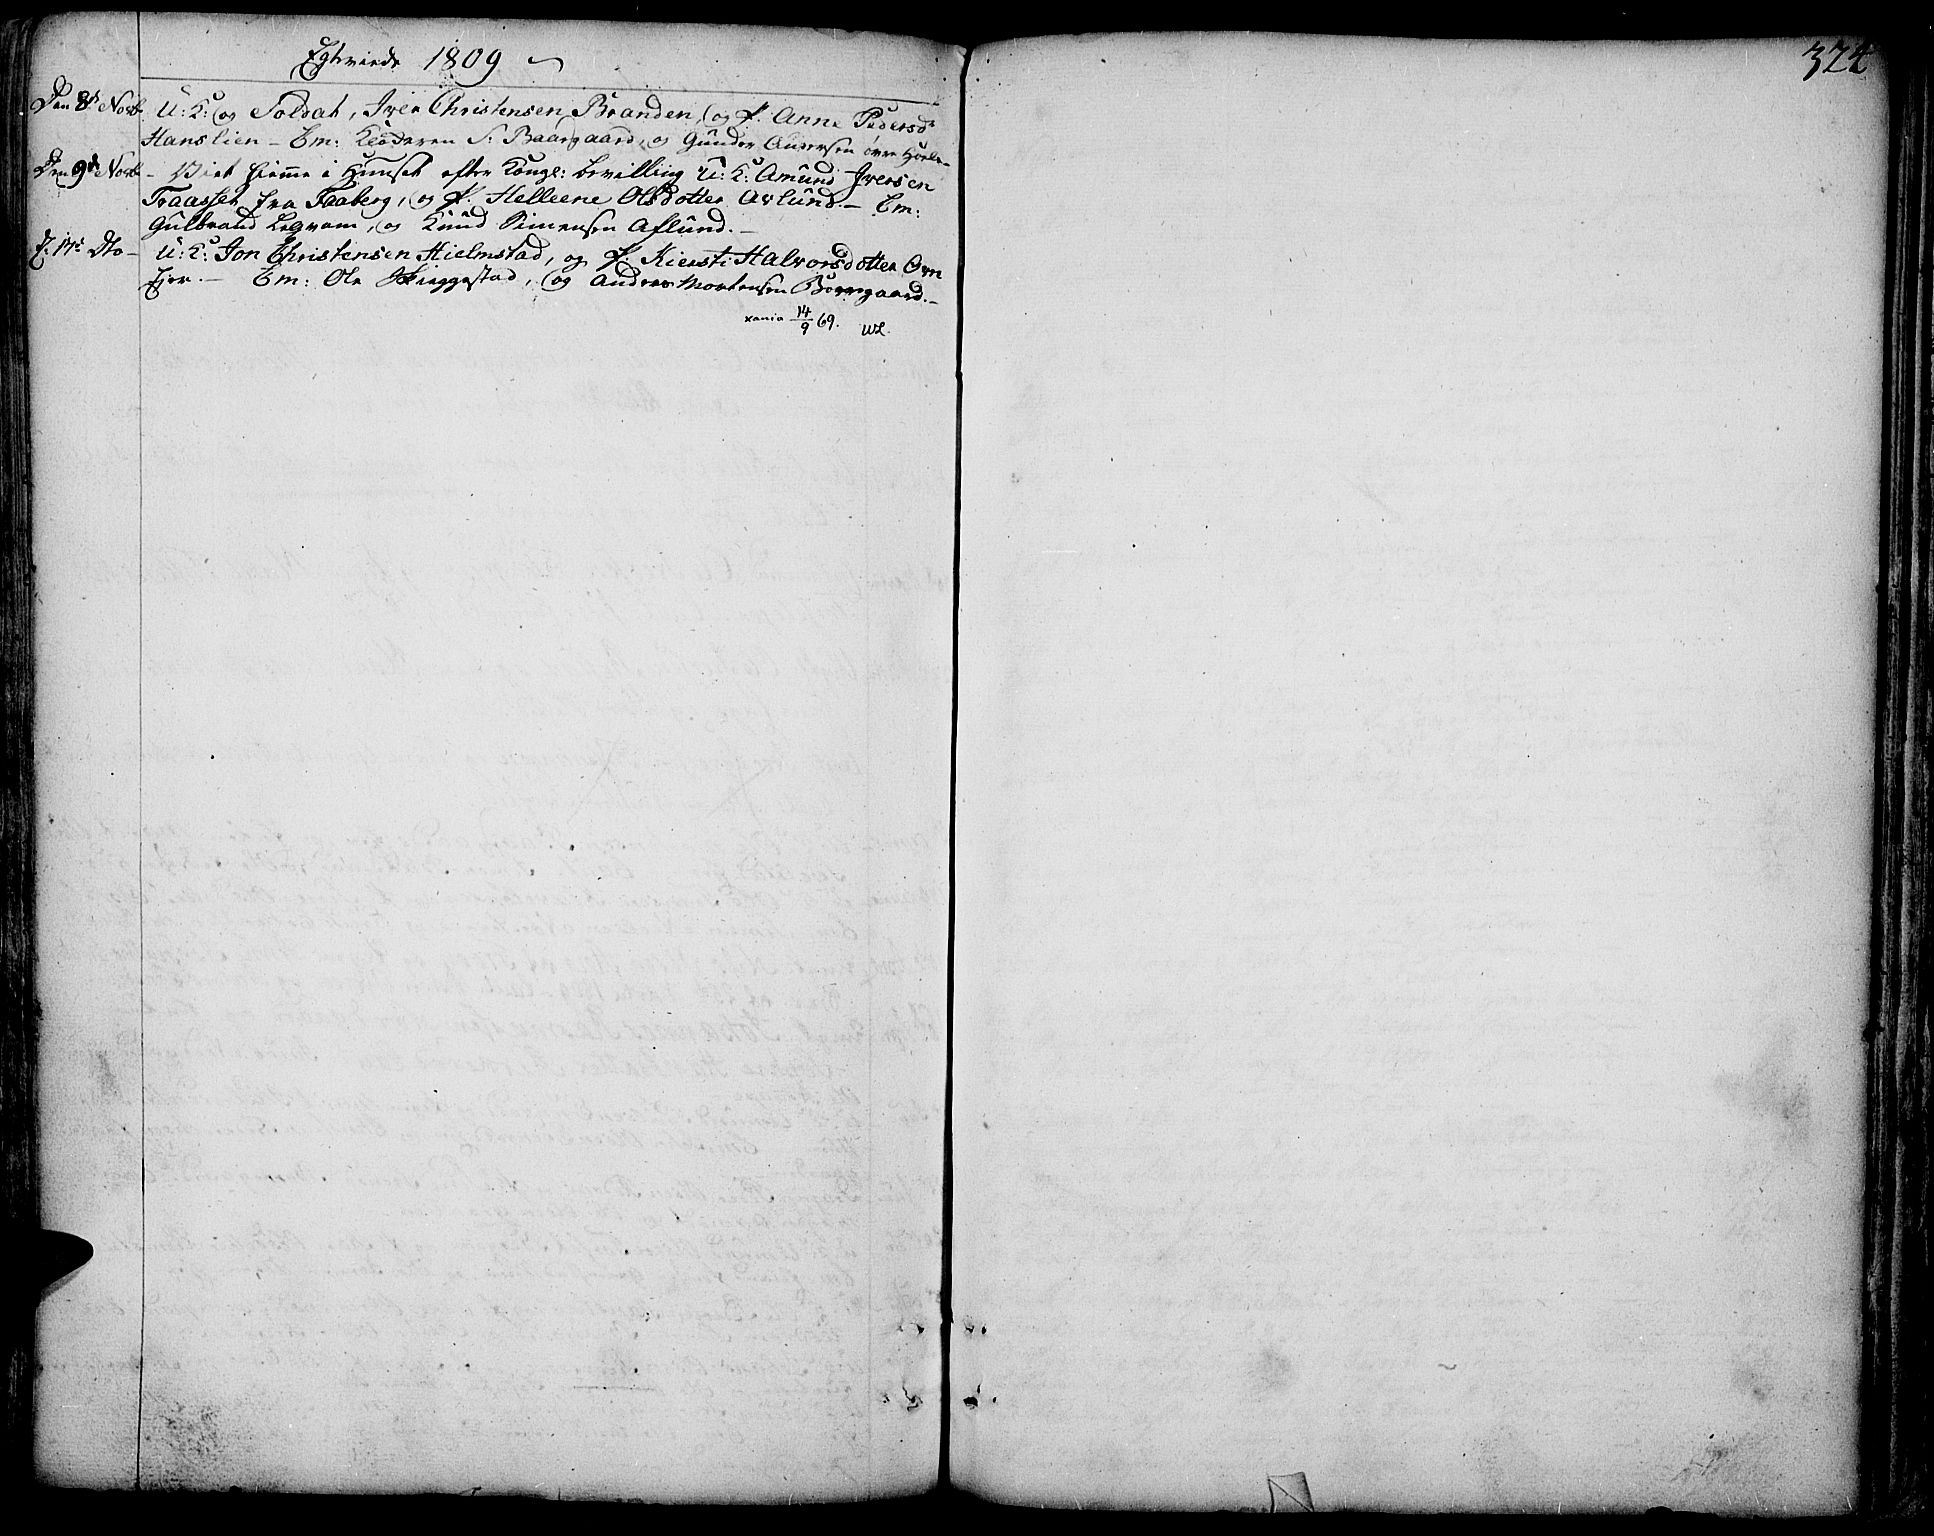 Egteviede 1809
324
Den 8de Novb U: K: og Soldat, Iver Christensen Branden, og P. Anne Pedersd:
Hanslien - Em: Klokeren S: Baargaard, og Gunder Andersen øvre
Den 9de Novb - Viet hiemme i Huuset efter Kongl: bevilling U: K: Amund Iversen
Traasset fra Faaberg, og P. Helleene Olsdotter Avlund. - Em:
Gulbrand Legrom, og Knud Simensen Aflund. -
d. 17de Dto - U: K: Jon Christensen Hielmstad, og P. Kiersti Halvorsdotter
Em: Ole Skieggestad, og Anders Mortensen Børregaard. -
xania 14/9 69. WL.